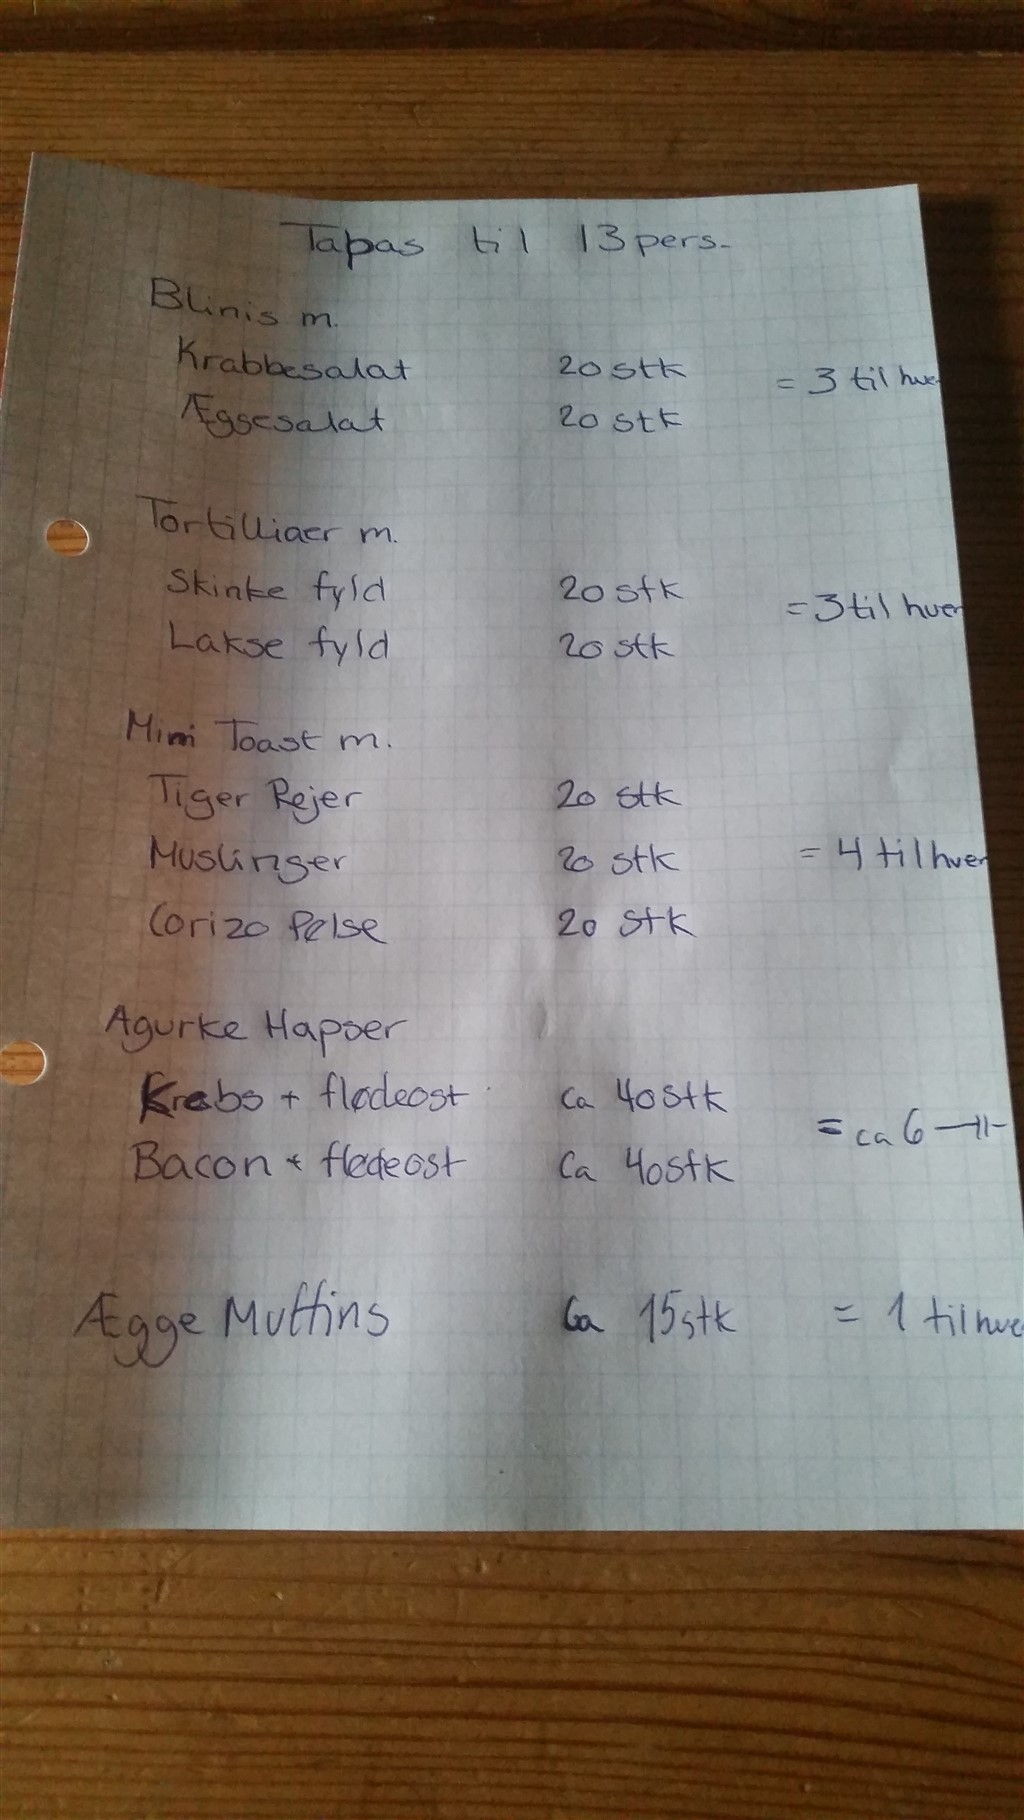 Tapas til 13 pers.
Blinis m.
Krabbesalat 20 stk = 3 til hve
Æggesalat 20 stk
Tortilliaer m.
Skinke fyld 20 stk = 3 til hver
Lakse fyld 20 stk
Mini Toast m.
Tiger Rejer 20 stk
Muslinger 20 stk = 4 til hver
Corizo Pølse 20 stk
Agurke Hapser
Krebs + flødeost ca 40 stk = ca 6 -||-
Bacon + flødeost Ca 40 stk
Ægge Muffins Ca 15 stk = 1 til hve